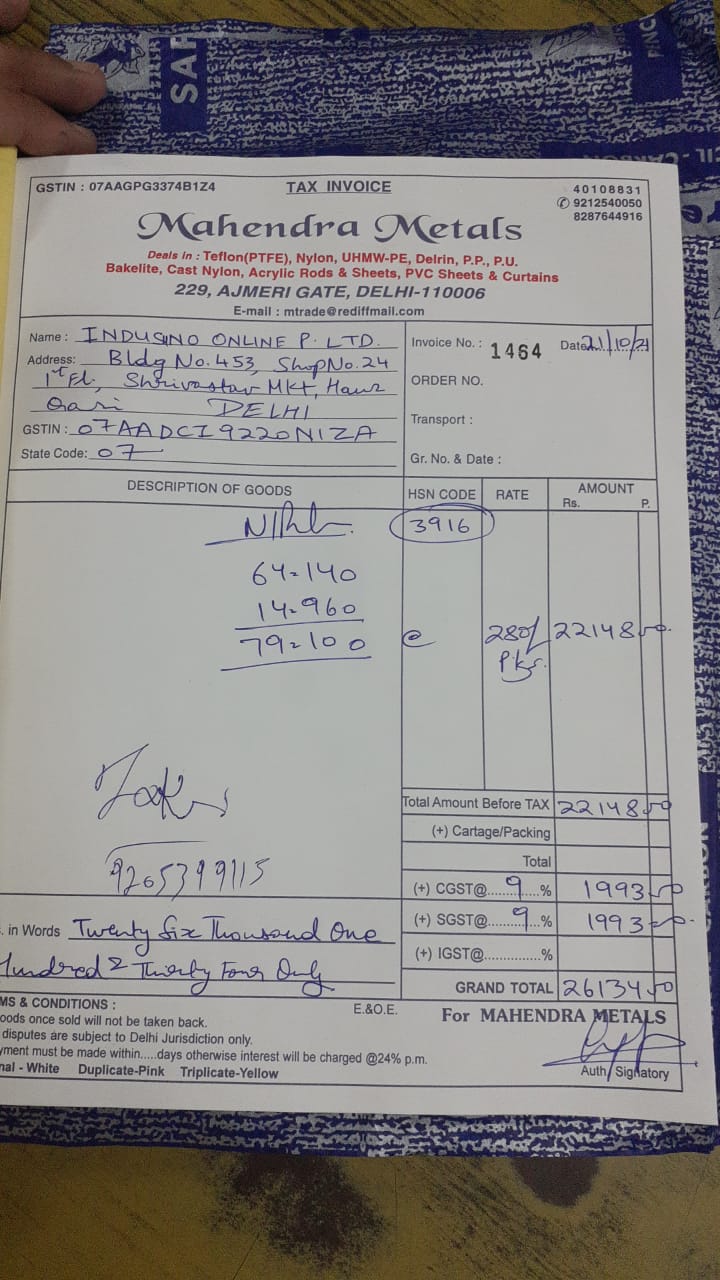 SAF
GSTIN : 07AAGPG3374B1Z4
TAX INVOICE
40108831
9212540050
8287644916
Mahendra Metals
Deals in : Teflon(PTFE), Nylon, UHMW-PE, Delrin, P.P., P.U.
Bakelite, Cast Nylon, Acrylic Rods & Sheets, PVC Sheets & Curtains
229, AJMERI GATE, DELHI-110006
E-mail : mtrade@rediffmail.com
Name : INDUSINO ONLINE P. LTD.
Address: Bldg No. 453, Shop No. 24
1st Fl, Shrivastav MKT, Hauz
DELHI
GSTIN : 07AADCI9220N1ZA
State Code: 07
Invoice No. : 1464 Date 21/10/21
ORDER NO.
Transport :
Gr. No. & Date :
DESCRIPTION OF GOODS HSN CODE RATE AMOUNT
Rs. P.
3916
64=140
14=960
79=100 @ 280/ 22148
Total Amount Before TAX 22148
(+) Cartage/Packing
Total
9265399115
(+) CGST@ 9 % 1993
. in Words Twenty Six Thousand One (+) SGST@ 9 % 1993
Hundred & Thirty Four Only (+) IGST@.............%
GRAND TOTAL 26134
MS & CONDITIONS : E.&O.E. For MAHENDRA METALS
oods once sold will not be taken back.
disputes are subject to Delhi Jurisdiction only.
yment must be made within.....days otherwise interest will be charged @24% p.m.
nal - White Duplicate-Pink Triplicate-Yellow
Auth. Signatory